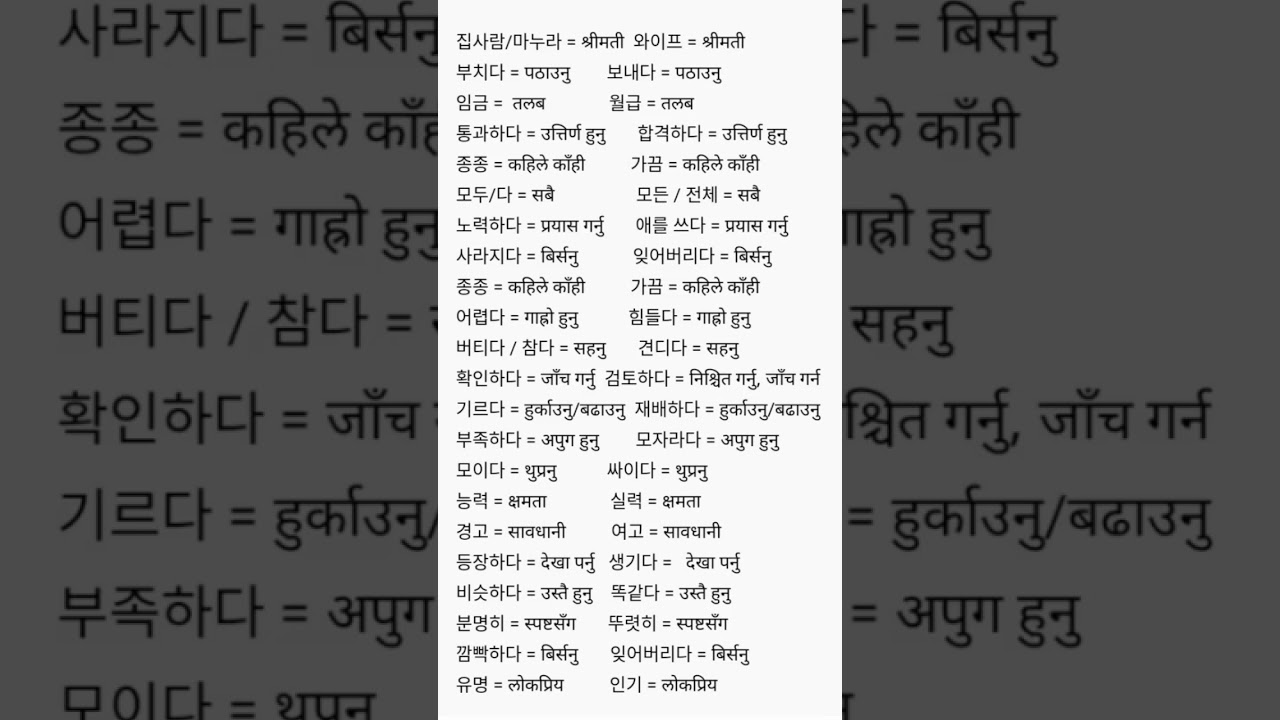 집사람/마누라 = श्रीमती 와이프 = श्रीमती
부치다 = पठाउनु 보내다 = पठाउनु
임금 = तलब 월급 = तलब
통과하다 = उत्तिर्ण हुनु 합격하다 = उत्तिर्ण हुनु
종종 = कहिले काँही 가끔 = कहिले काँही
모두/다 = सबै 모든 / 전체 = सबै
노력하다 = प्रयास गर्नु 애를 쓰다 = प्रयास गर्नु
사라지다 = बिर्सनु 잊어버리다 = बिर्सनु
종종 = कहिले काँही 가끔 = कहिले काँही
어렵다 = गाह्रो हुनु 힘들다 = गाह्रो हुनु
버티다 / 참다 = सहनु 견디다 = सहनु
확인하다 = जाँच गर्नु 검토하다 = निश्चित गर्नु, जाँच गर्न
기르다 = हुर्काउनु/बढाउनु 재배하다 = हुर्काउनु/बढाउनु
부족하다 = अपुग हुनु 모자라다 = अपुग हुनु
모이다 = थुप्रनु 싸이다 = थुप्रनु
능력 = क्षमता 실력 = क्षमता
경고 = सावधानी 여고 = सावधानी
등장하다 = देखा पर्नु 생기다 = देखा पर्नु
비슷하다 = उस्तै हुनु 똑같다 = उस्तै हुनु
분명히 = स्पष्टसँग 뚜렷히 = स्पष्टसँग
깜빡하다 = बिर्सनु 잊어버리다 = बिर्सनु
유명 = लोकप्रिय 인기 = लोकप्रिय